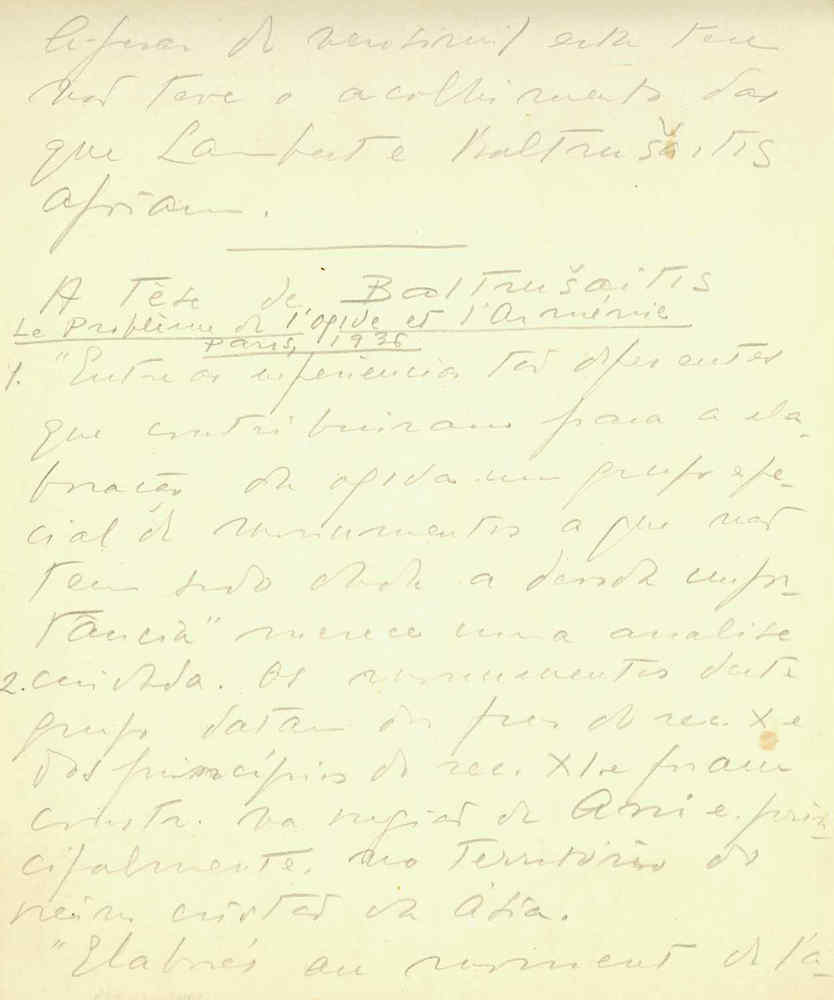 de verosimil esta tese
não teve o acolhimento das
que Lambert e Baltrušaitis
apoiam.
A Tése de Baltrušaitis
Le Problème de l'ogive et l'Arménie
Paris, 1936
1. "Entre as experiencias tão diferentes
que contribuiram para a ela-
boração da ogiva um grupo espe-
cial de monumentos a que não
tem sido dada a devida impor-
tância" merece uma analise
2. cuidada. Os monumentos deste
grupo datam dos fins do sec. X e
dos princípios do sec. XI e foram
constr. na região de Ani e prin-
cipalmente, no território do
reino cristão da Ásia.
"Elaborés au moment de l'a-